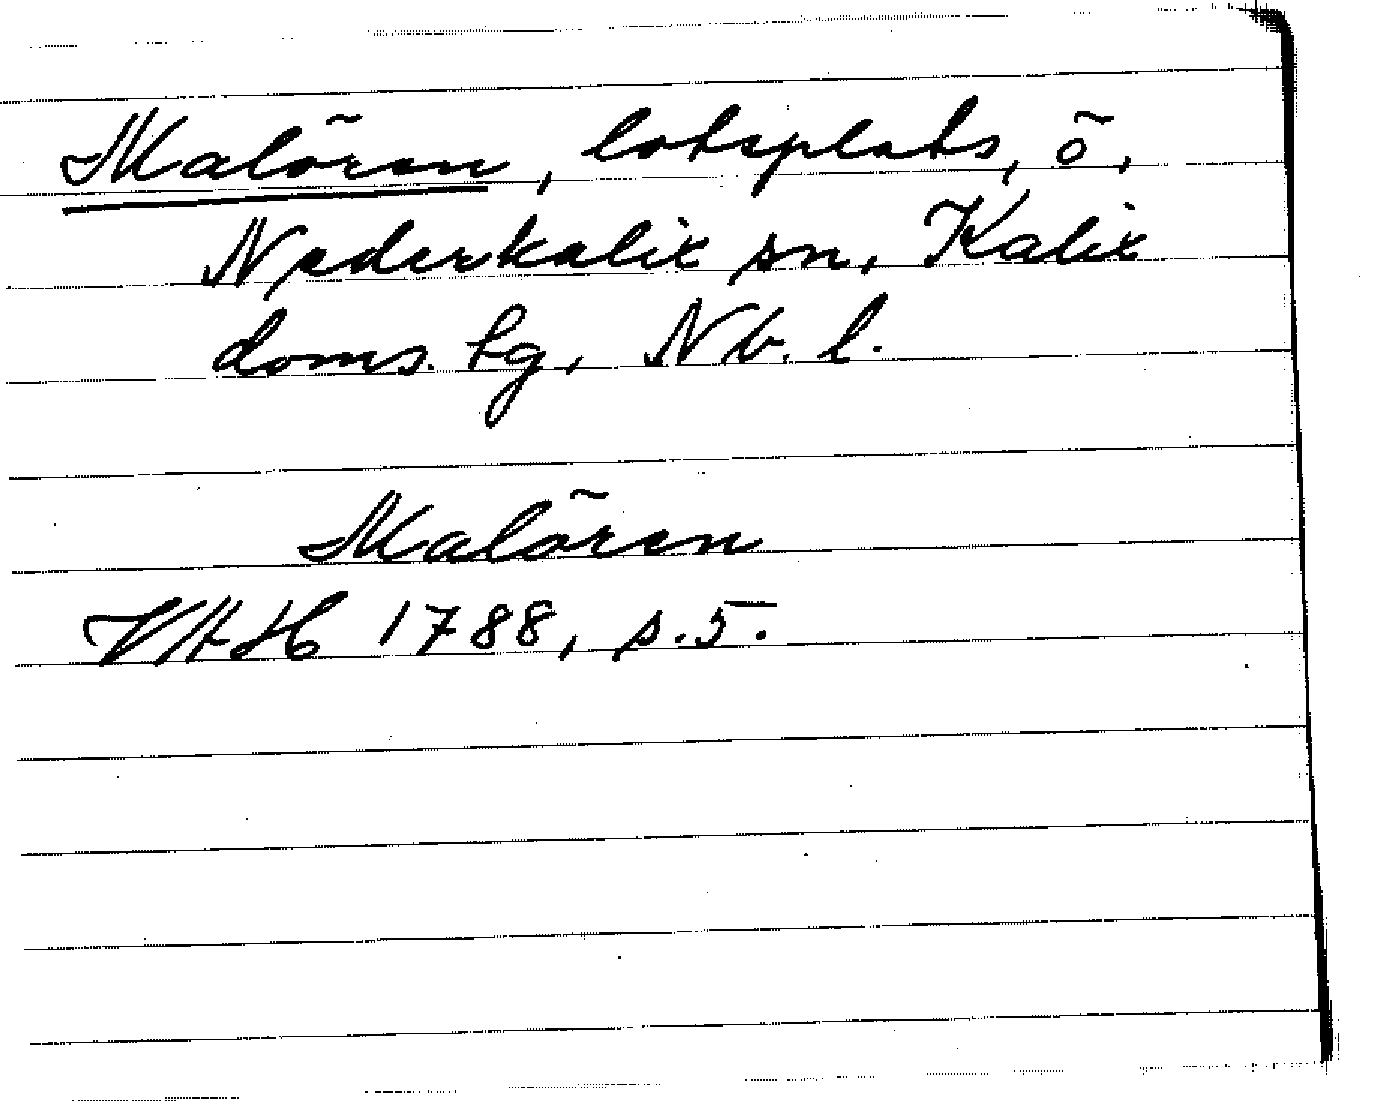 Malören, lotsplats, ö,
Nederkalix sn, Kalix
doms. lg, Nb. l.
Malören
VAH 1788, s. 5.